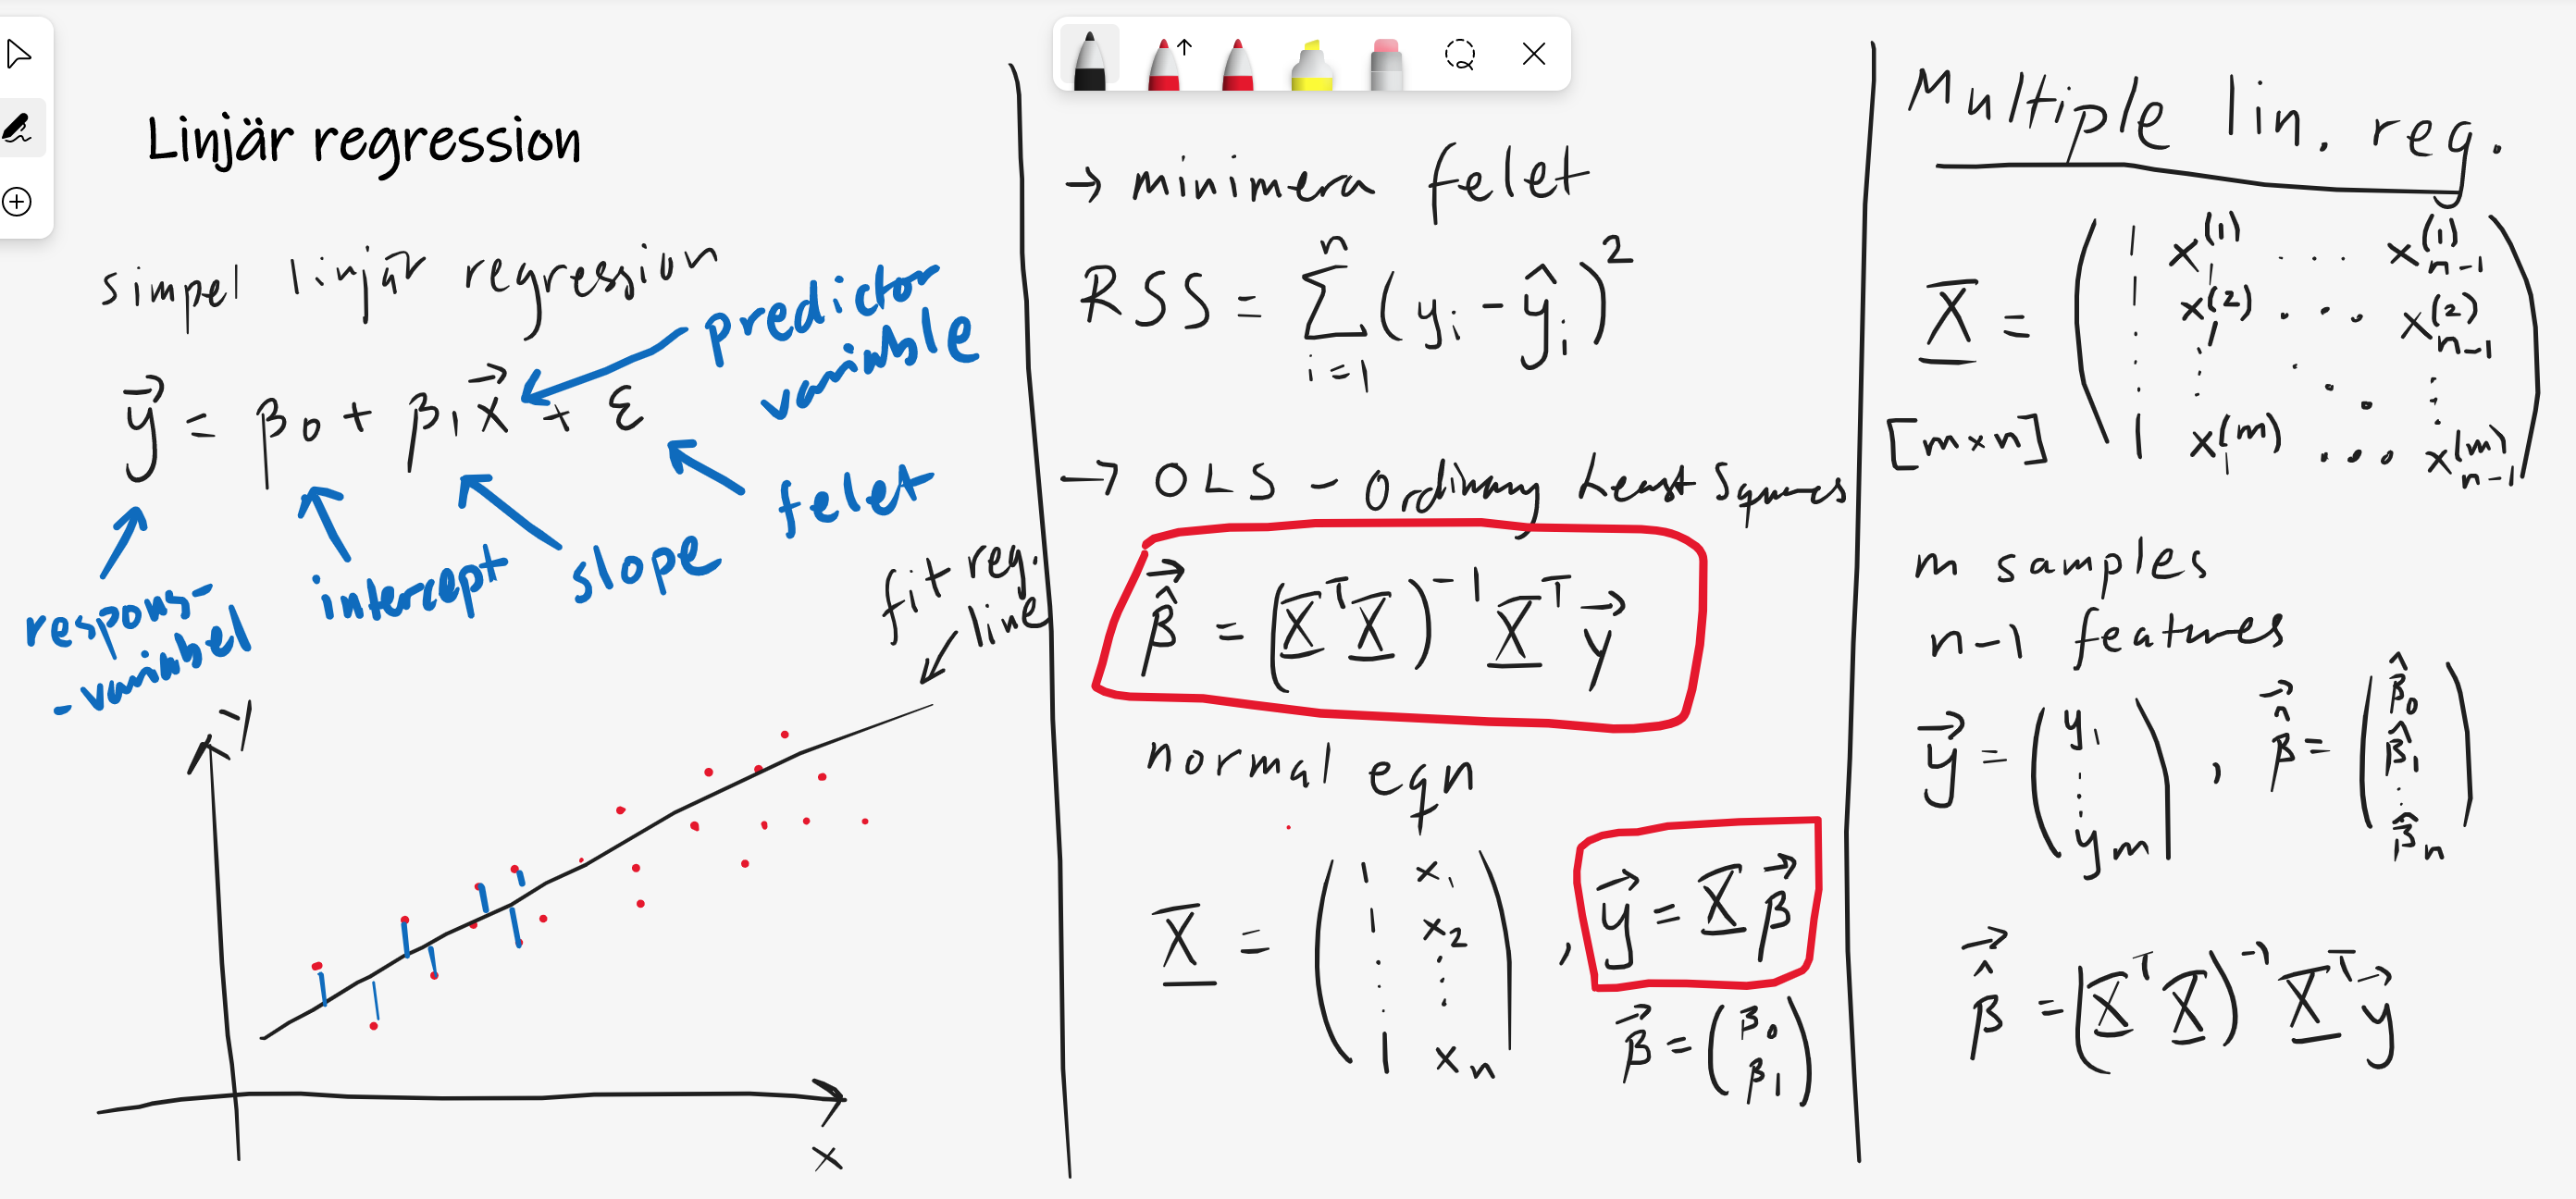 Linjär regression
simpel linjär regression
predictor
variable
y⃗ = β₀ + β₁x⃗ + ε
felet
slope
intercept
respons-
-variabel
fit reg.
line
y
x
→ minimera felet
RSS = Σⁿᵢ₌₁ (yᵢ - ŷᵢ)²
→ OLS - Ordinary Least Squares
β̂⃗ = (X̲ᵀX̲)⁻¹ X̲ᵀy⃗
normal eqn
X̲ = (1 x₁
1 x₂
⋮ ⋮
1 xₙ) , y⃗ = X̲β⃗
β⃗ = (β₀
β₁)
Multiple lin. reg.
X̲ = (1 x₁⁽¹⁾ ... xₙ₋₁⁽¹⁾
1 x₁⁽²⁾ ... xₙ₋₁⁽²⁾
⋮ ⋮ ⋱ ⋮
1 x₁⁽ᵐ⁾ ... xₙ₋₁⁽ᵐ⁾)
[m×n]
m samples
n-1 features
y⃗ = (y₁
⋮
yₘ) , β̂⃗ = (β̂₀
β̂₁
⋮
β̂ₙ)
β̂⃗ = (X̲ᵀX̲)⁻¹ X̲ᵀy⃗